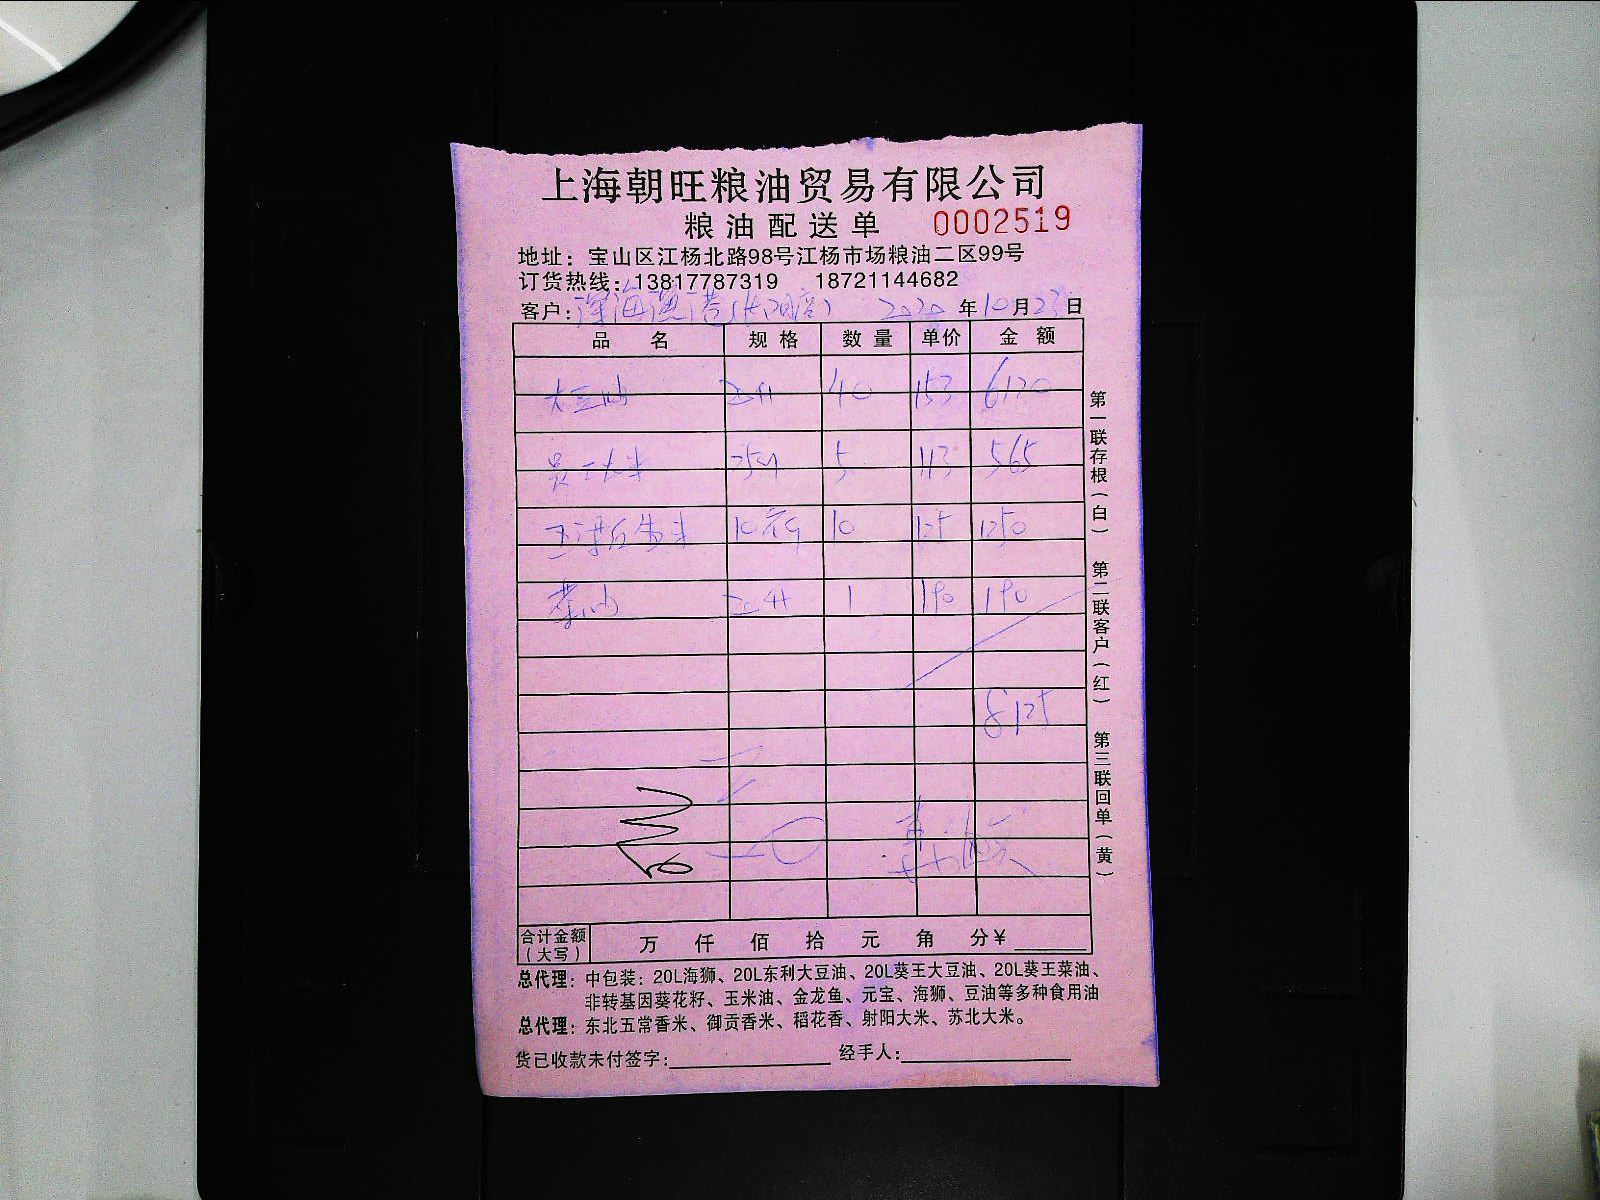 上海朝旺粮油贸易有限公司
粮油配送单 0002519
地址：宝山区江杨北路98号江杨市场粮油二区99号
订货热线：13817787319 18721144682
客户：深海渔港 2020年10月23日
品名 规格 数量 单价 金额
大豆油 20升 40 153 6120
员工大米 25kg 5 113 565
10 125 1250
菜油 20升 1 190 190
8125
合计金额（大写） 万 仟 佰 拾 元 角 分￥
总代理：中包装：20L海狮、20L东利大豆油、20L葵王大豆油、20L葵王菜油、
非转基因葵花籽、玉米油、金龙鱼、元宝、海狮、豆油等多种食用油
总代理：东北五常香米、御贡香米、稻花香、射阳大米、苏北大米。
货已收款未付签字： 经手人：
第一联存根（白） 第二联客户（红） 第三联回单（黄）